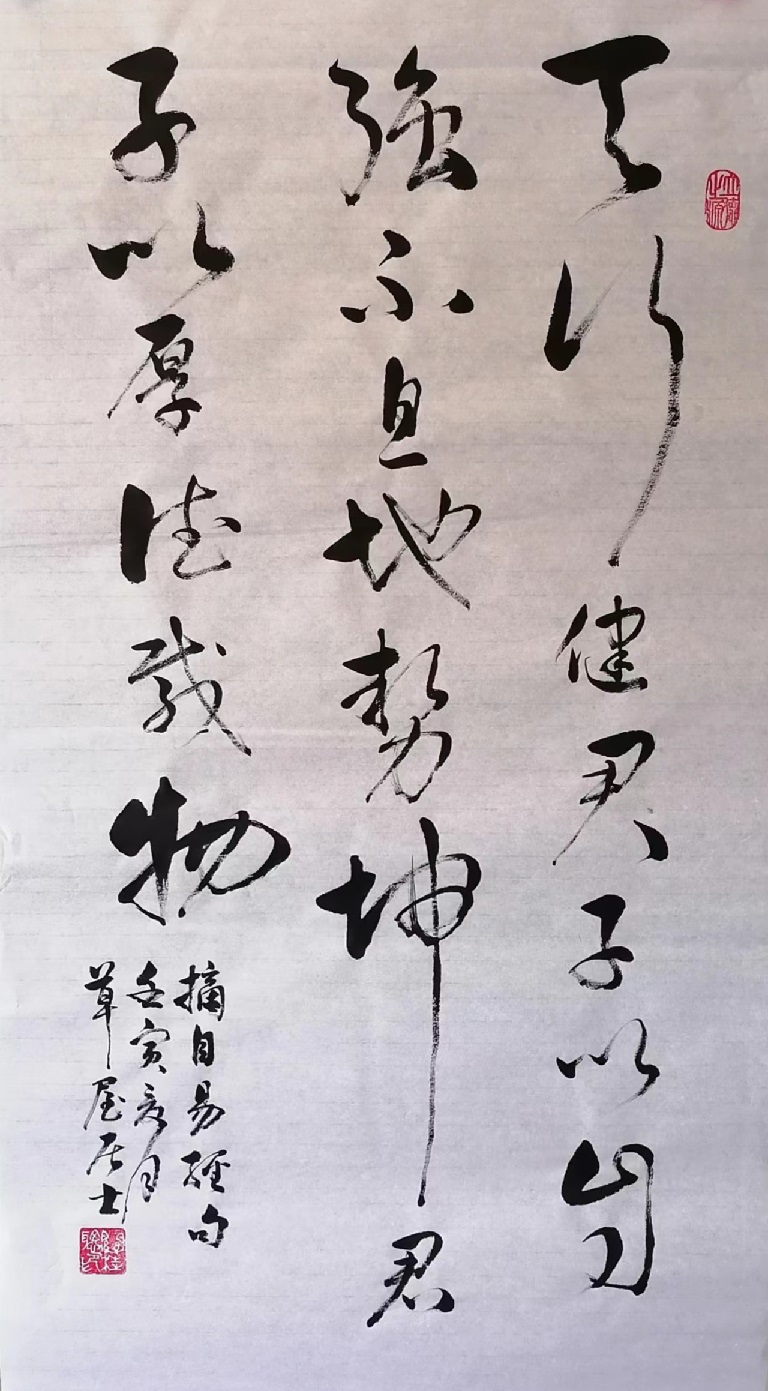 天行健君子以自
強不息地勢坤君
子以厚德載物
摘自易經句
壬寅亥月
草屋居士